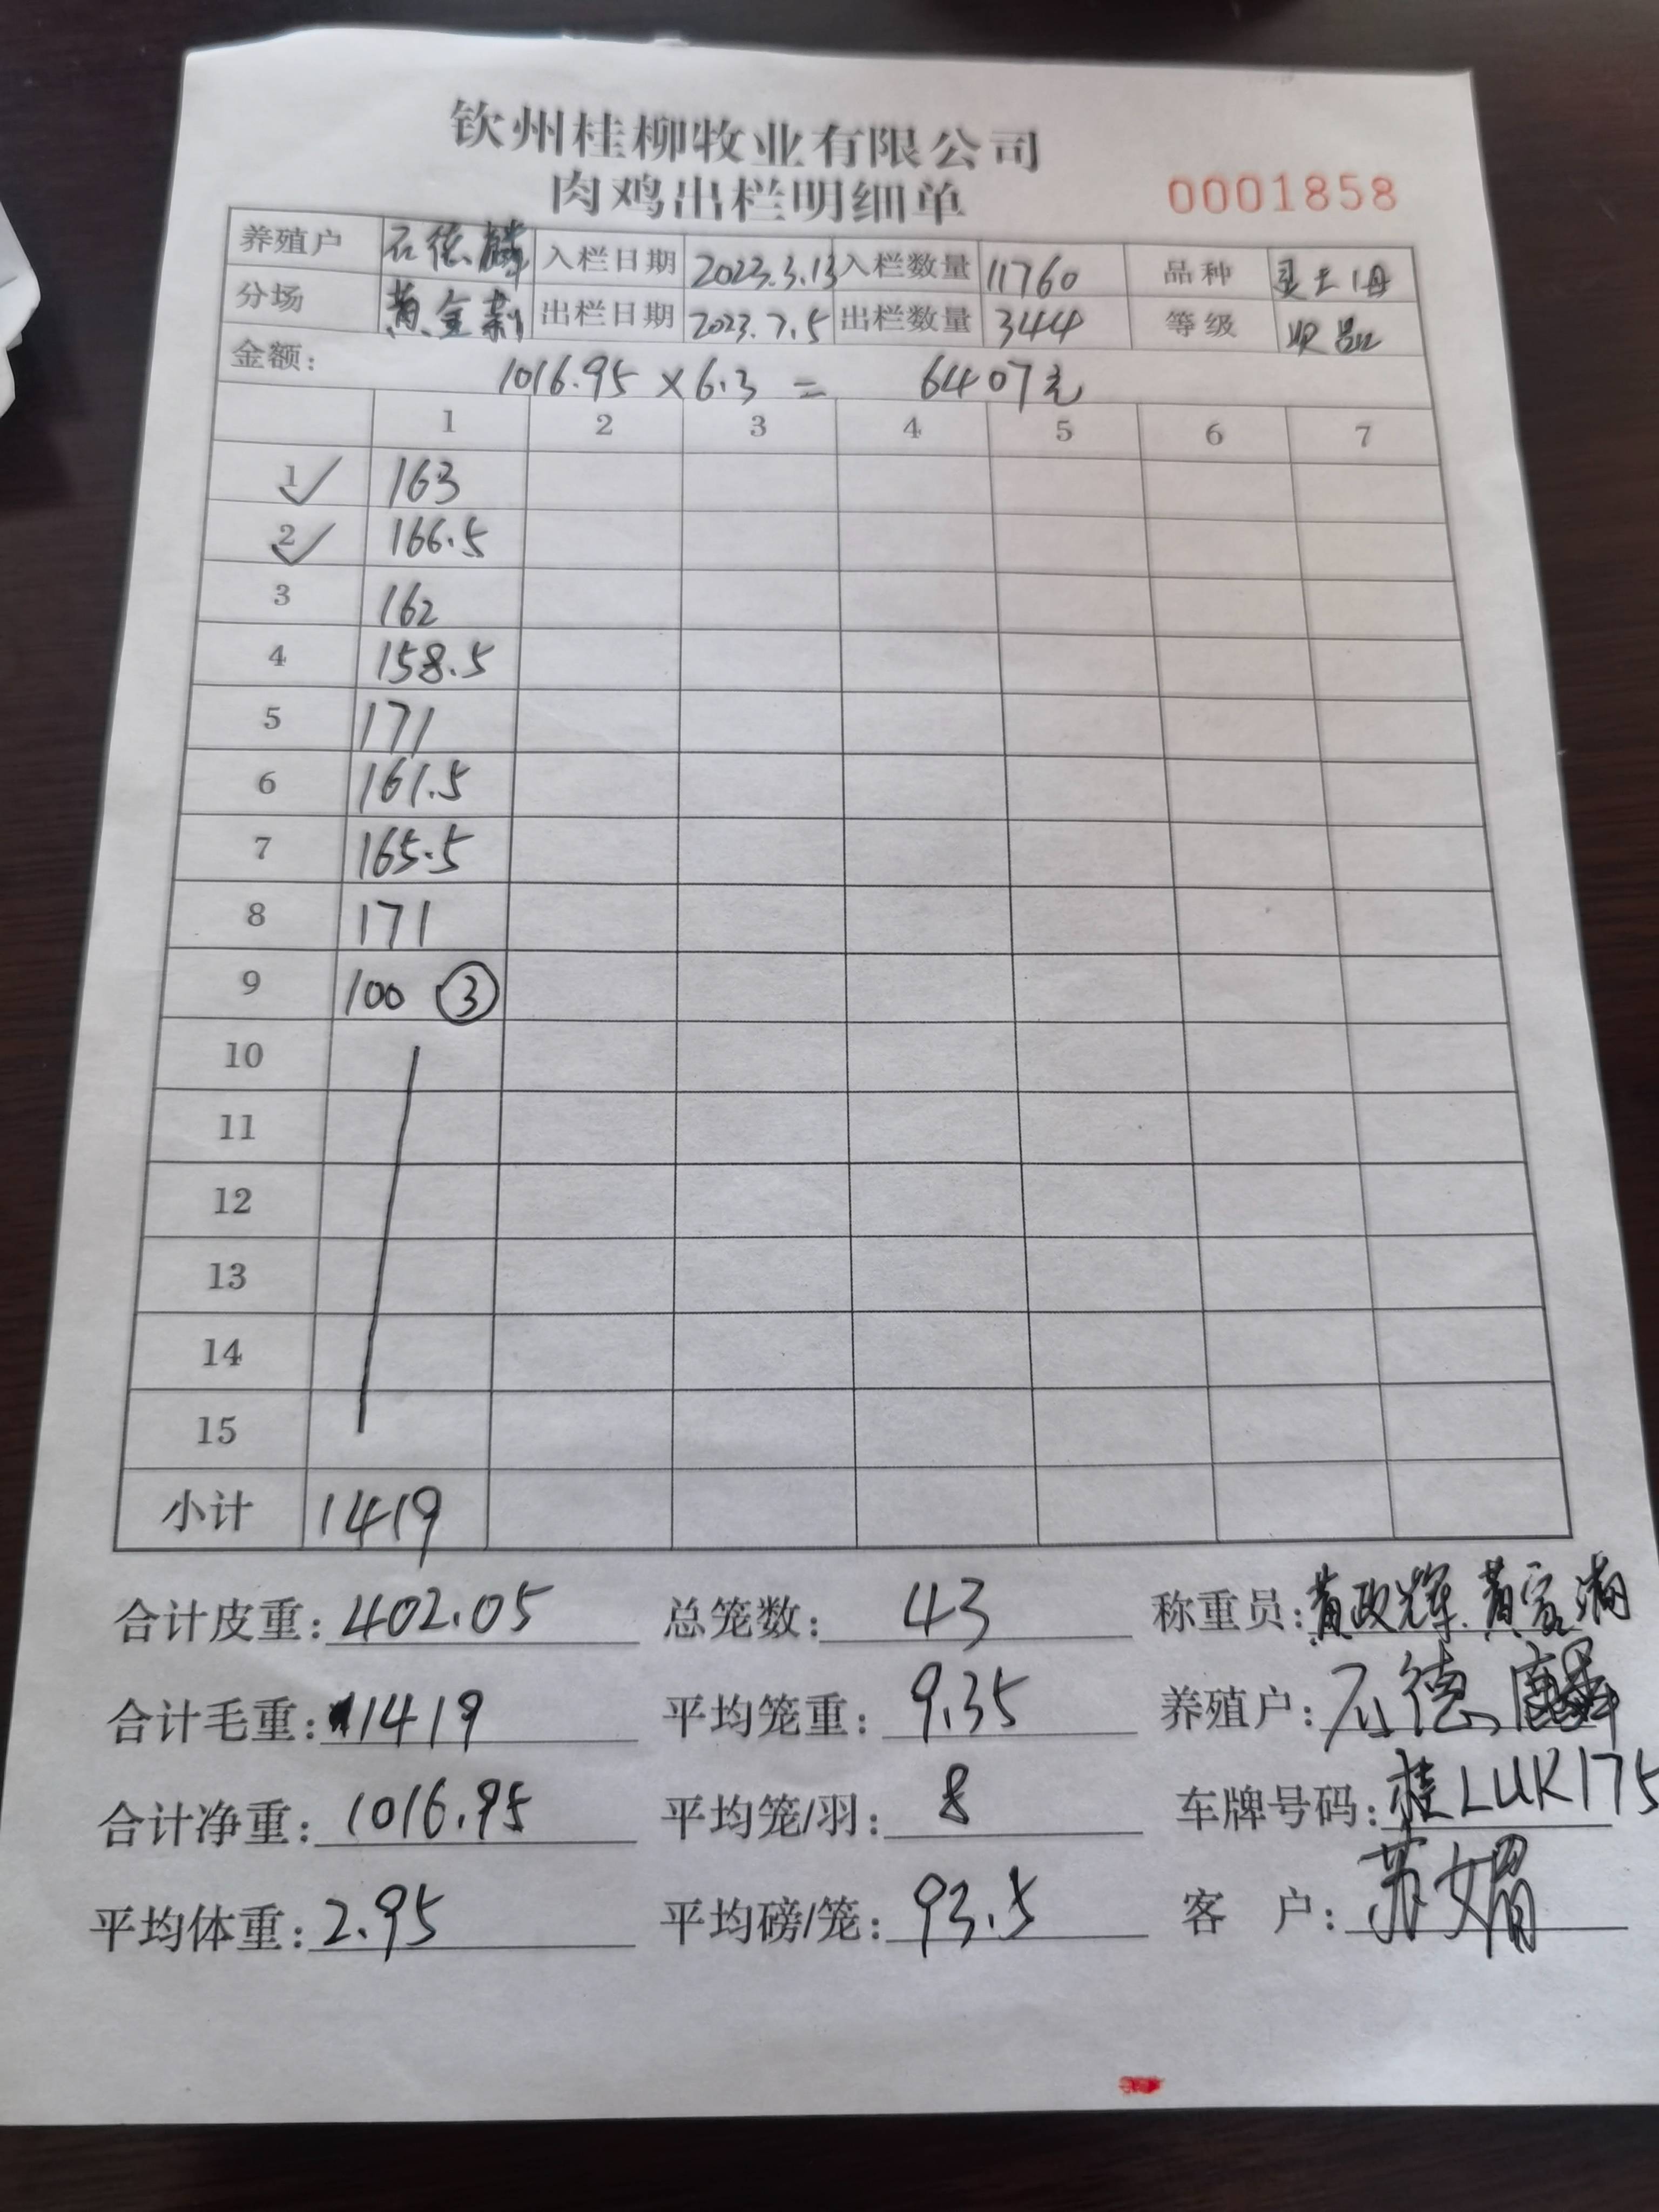 钦州桂柳牧业有限公司
肉鸡出栏明细单 0001858
养殖户 石德麟 入栏日期 2023.3.13 入栏数量 11760 品种 灵土1母
分场 黄金 出栏日期 2023.7.5 出栏数量 344 等级
金额: 1016.95 × 6.3 = 6407元
1 2 3 4 5 6 7
1 163
2 166.5
3 162
4 158.5
5 171
6 161.5
7 165.5
8 171
9 100 ③
10
11
12
13
14
15
小计 1419
合计皮重: 402.05 总笼数: 43 称重员: 黄政辉.黄家满
合计毛重: 1419 平均笼重: 9.35 养殖户: 石德麟
合计净重: 1016.95 平均笼/羽: 8 车牌号码: 桂LUK175
平均体重: 2.95 平均磅/笼: 93.5 客 户: 苏媚